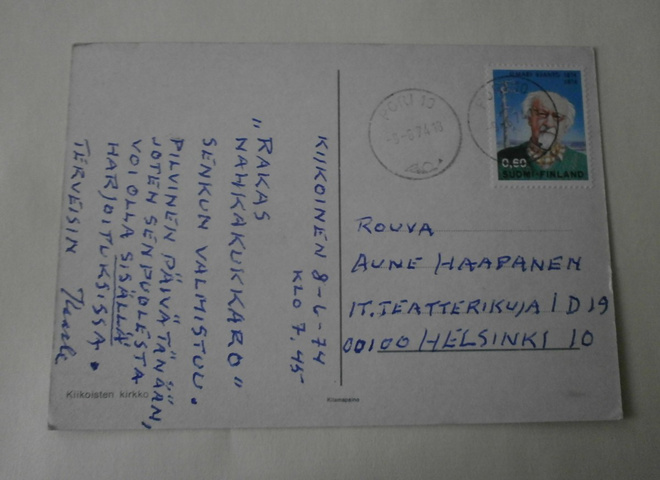 KIIKOINEN 8-6-74
KLO 7.45
"RAKAS
NAHKAKUKKARO"
SENKUN VALMISTUU.
PILVINEN PÄIVÄ TÄNÄÄN,
JOTEN SEN PUOLESTA
VOI OLLA SISÄLLÄ
HARJOITUKSISSA.
TERVEISIN
Kiikoisten kirkko
PORI 10
0,60
SUOMI-FINLAND
ROUVA
AUNE HAAPANEN
IT.TEATTERIKUJA 1 D 19
00100 HELSINKI 10